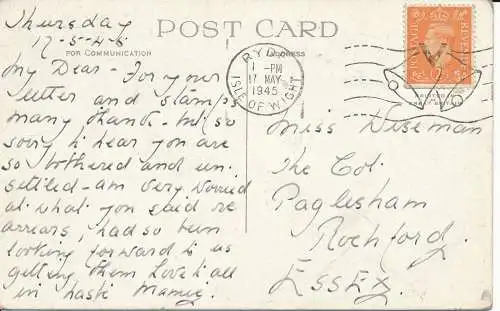 Thursday
17-5-45
POST CARD
FOR COMMUNICATION
ADDRESS
RYDE
1 - PM
17 MAY
1945
ISLE OF WIGHT
POSTAGE
REVENUE
V
My Dear - For your
letter and stamps
many thanks - but so
sorry to hear you are
so bothered and un
settled - am very worried
at what you said re
arrears, had so been
looking forward to us
getting them Love to all
in haste
Miss Wiseman
The Cot.
Paglesham
Rochford.
ESSEX